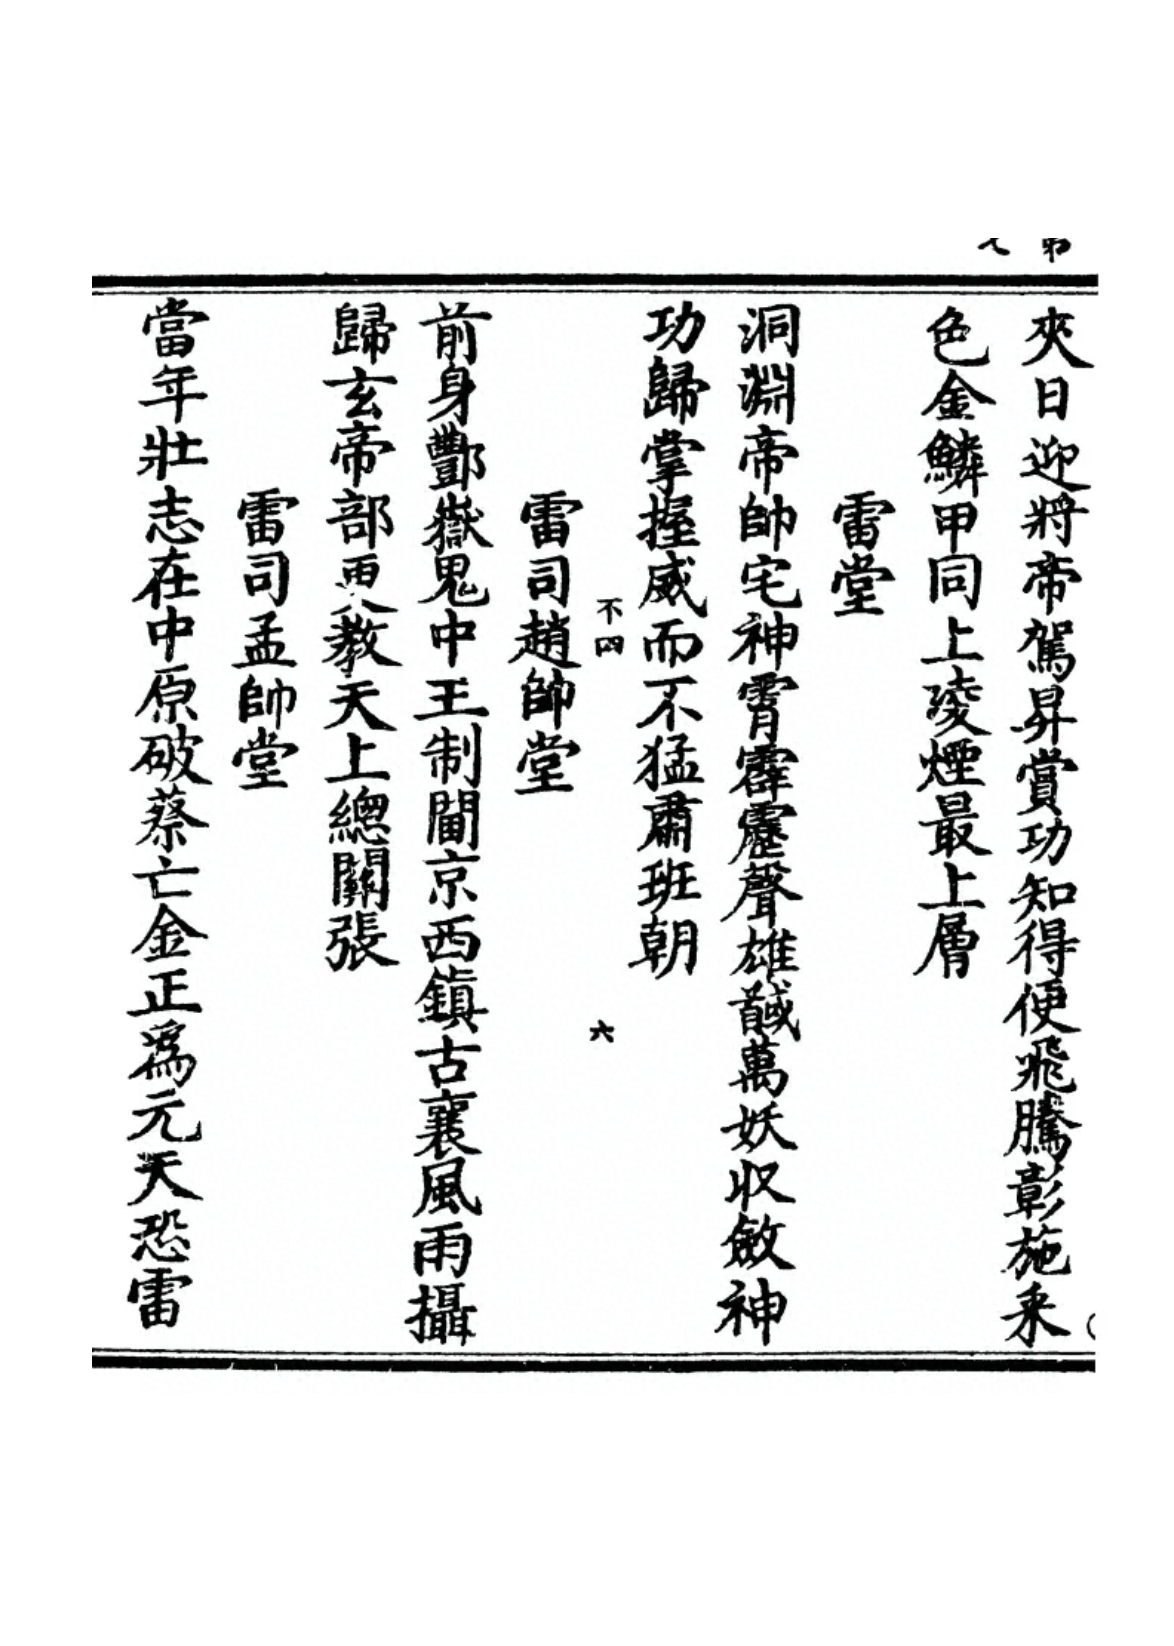 夾日迎將帝駕昇賞功知得便飛騰彰施采
色金鱗甲同上凌煙最上層
雷堂
洞淵帝帥宅神霄霹靂聲雄馘萬妖収斂神
功歸掌握威而不猛肅班朝
不四
六
雷司趙帥堂
前身酆嶽鬼中王制閫京西鎮古襄風雨攝
歸玄帝部更教天上總關張
雷司孟帥堂
當年壯志在中原破蔡亡金正為元天恐雷